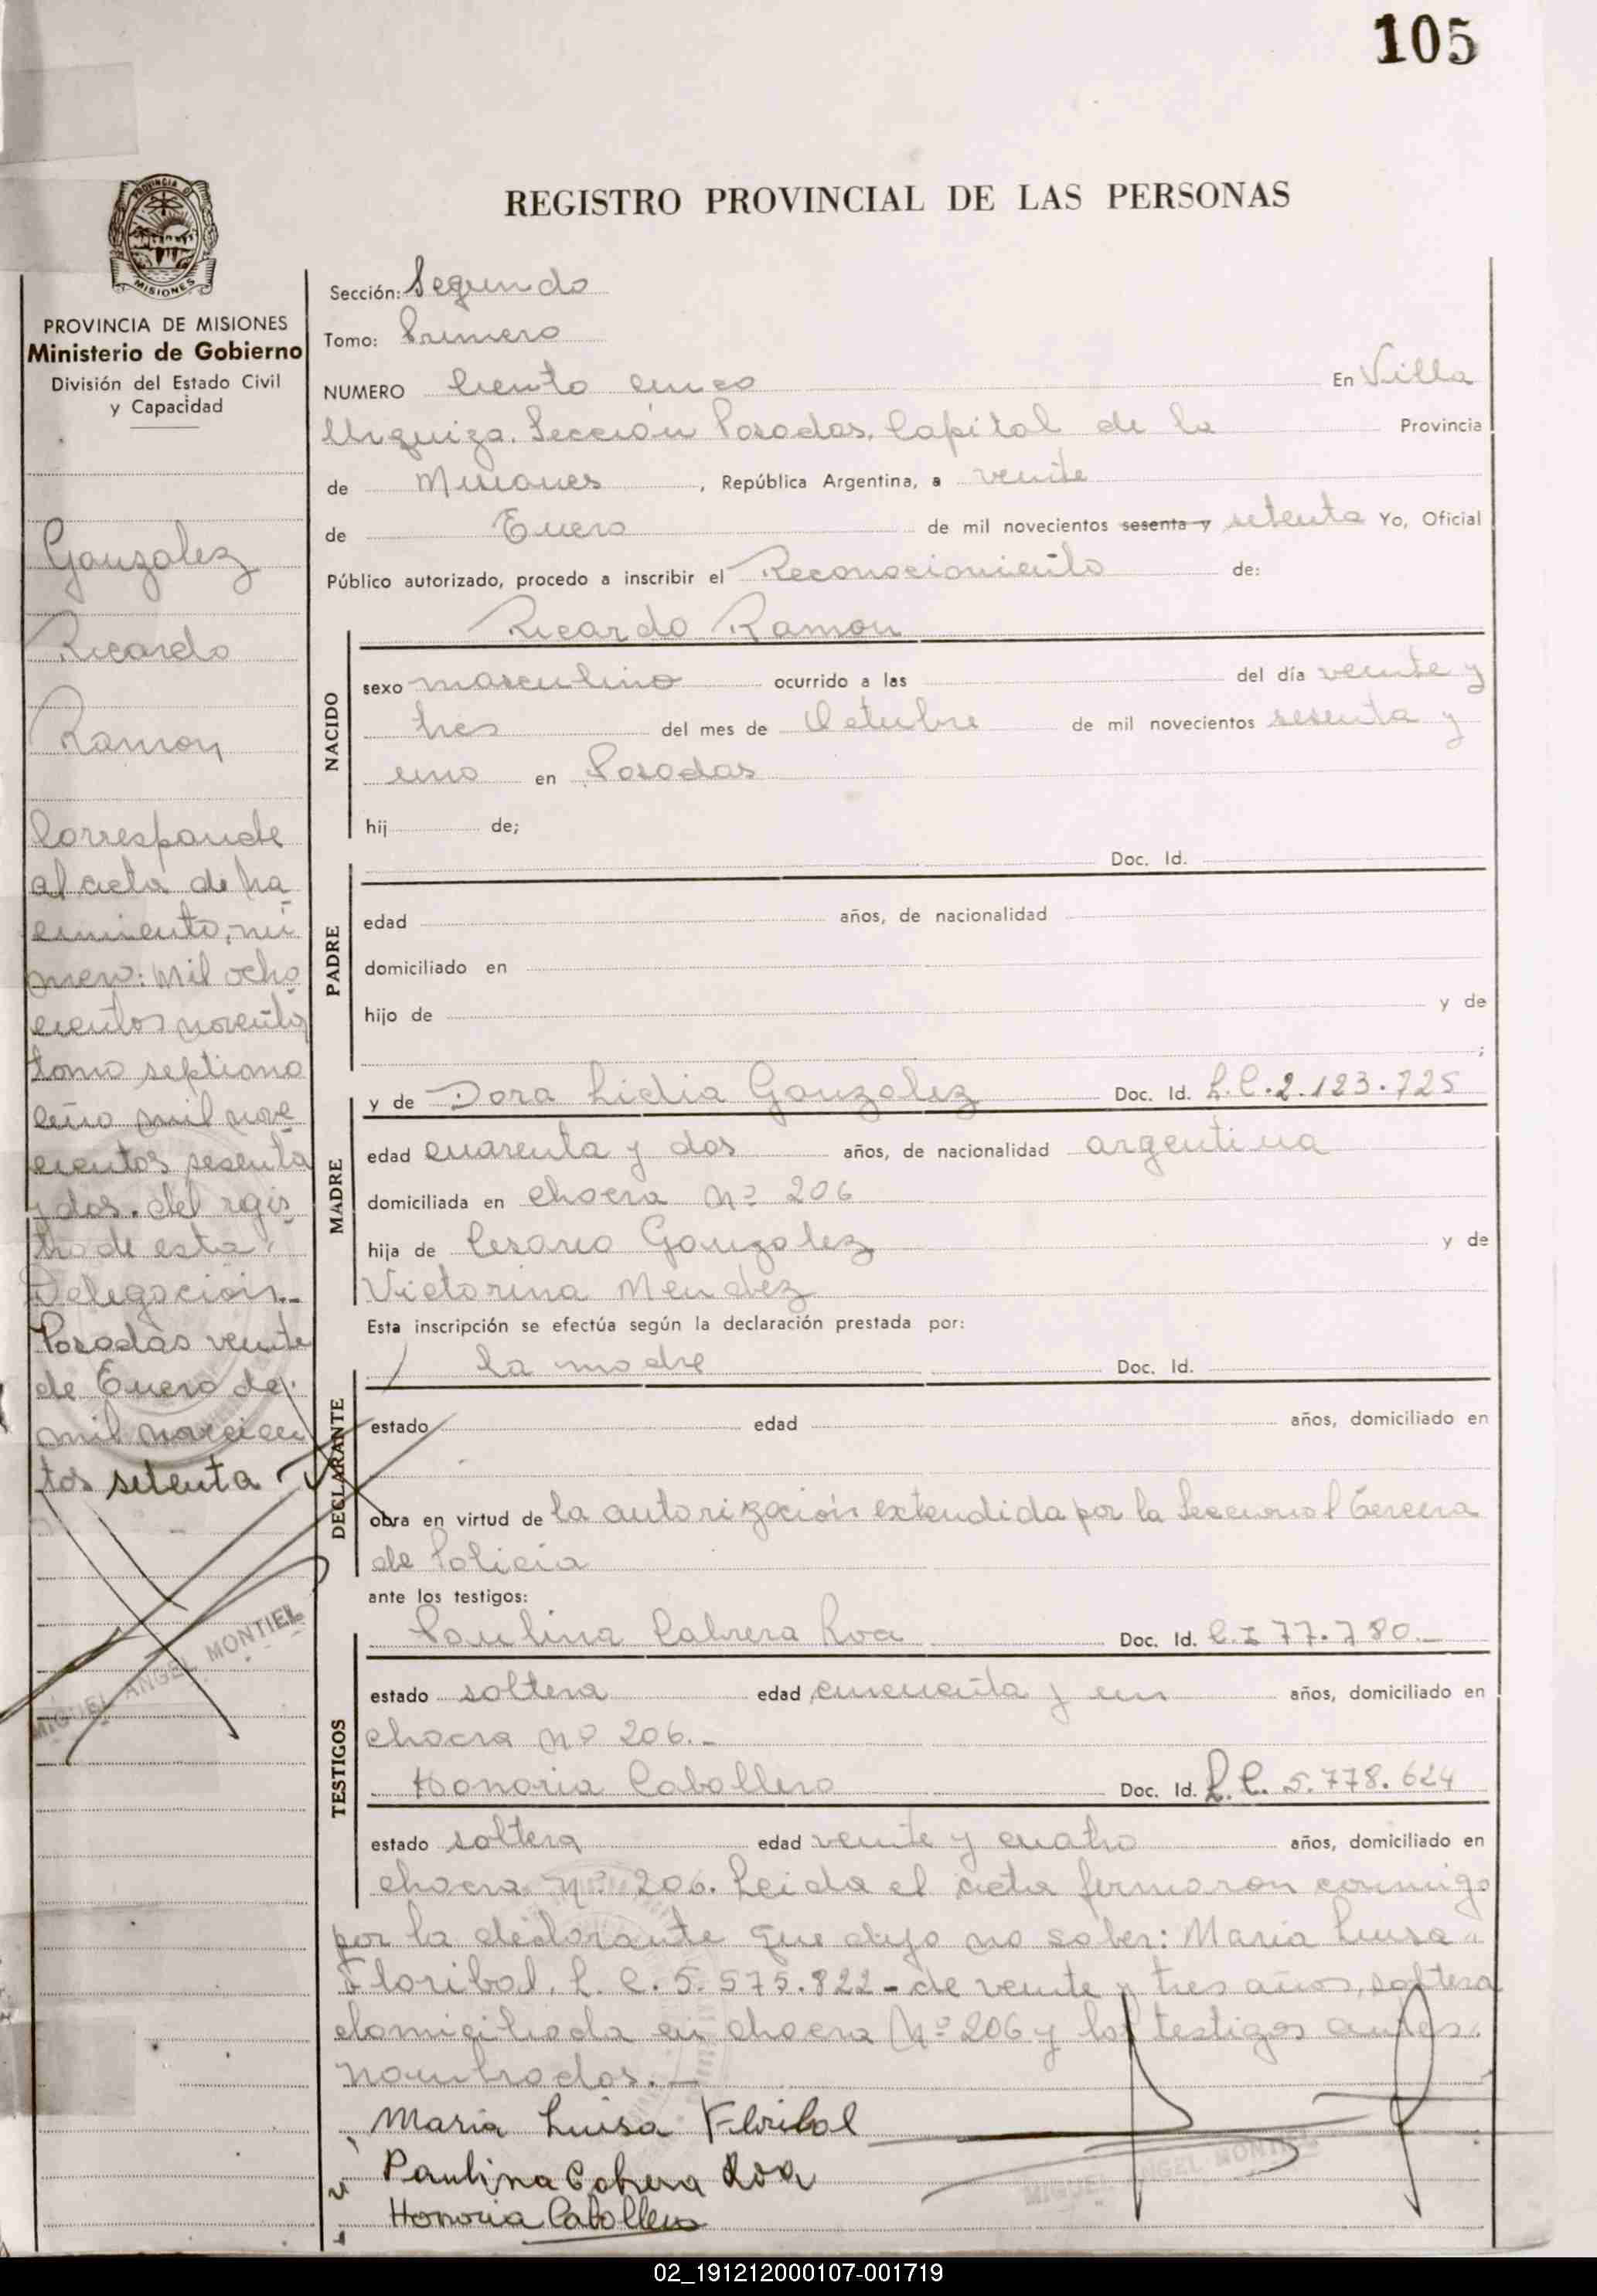 105
REGISTRO PROVINCIAL DE LAS PERSONAS
PROVINCIA DE MISIONES
Ministerio de Gobierno
División del Estado Civil
y Capacidad
Gonzalez
Ricardo
Ramon
Corresponde
al acta de na
cimiento, nú
mero: mil ocho
cientos noventa
tomo septimo
año mil nove
cientos sesenta
y dos. del regis
tro de esta
Delegación.-
Posadas veinte
de Enero de
mil novecien
tos setenta
MIGUEL ANGEL MONTIEL
Sección: Segundo
Tomo: Primero
NUMERO Ciento cinco En Villa
Urquiza. Sección Posadas, Capital de la Provincia
de Misiones, República Argentina, a veinte
de Enero de mil novecientos sesenta y setenta Yo, Oficial
Público autorizado, procedo a inscribir el Reconocimiento de:
Ricardo Ramon
NACIDO
sexo masculino ocurrido a las del día veinte y
tres del mes de Octubre de mil novecientos sesenta y
uno en Posadas
hij de;
Doc. Id.
PADRE
edad años, de nacionalidad
domiciliado en
hijo de y de
;
y de Dora Lidia Gonzalez Doc. Id. L.C.2.123.725
MADRE
edad cuarenta y dos años, de nacionalidad argentina
domiciliada en chacra Nº 206
hija de Cesario Gonzalez y de
Victorina Mendez
Esta inscripción se efectúa según la declaración prestada por:
la madre Doc. Id.
DECLARANTE
estado edad años, domiciliado en
obra en virtud de la autorización extendida por la Seccional Tercera
de Policia
ante los testigos:
Paulina Cabrera Roa Doc. Id. C.I 77.780.-
TESTIGOS
estado soltera edad cincuenta y un años, domiciliado en
chacra nº 206.-
Honoria Caballero Doc. Id. L.C. 5.778.624
estado soltera edad veinte y cuatro años, domiciliado en
chacra nº 206. Leida el acta firmaron conmigo
por la declarante que dijo no saber: Maria Luisa
Floribal, L.C. 5.575.822 - de veinte y tres años, soltera
domiciliada en chacra Nº 206 y los testigos antes
nombrados.-
Maria Luisa Floribal
Paulina Cabrera Roa
Honoria Caballero
MIGUEL ANGEL MONTIEL
02_191212000107-001719